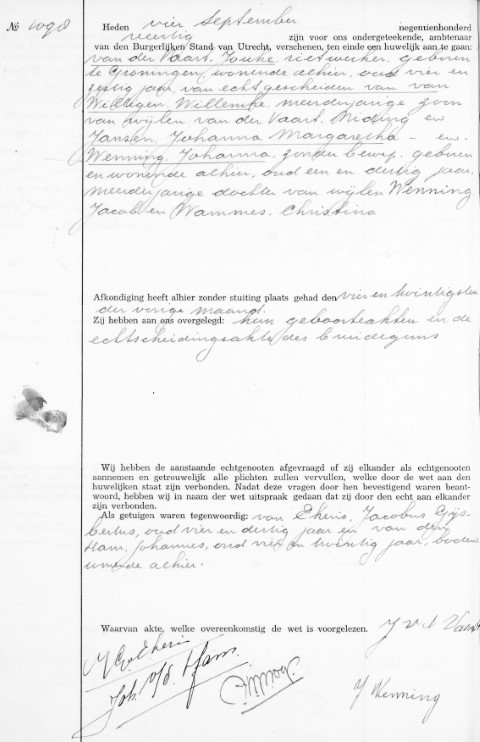 No 1098
Heden vier September negentienhonderd
veertig zijn voor ons ondergeteekende, ambtenaar
van den Burgerlijken Stand van Utrecht, verschenen, ten einde een huwelijk aan te gaan:
van der Vaart, Jouke rietwerker, geboren
te Groningen, wonende alhier, oud vier en
zestig jaar, van echt gescheiden van van
Willigen, Willemke, meerderjarige zoon
van wijlen van der Vaart, en
Jansen, Johanna Margaretha — en
Wenning, Johanna, zonder beroep, geboren
en wonende alhier, oud een en dertig jaar,
meerderjarige dochter van wijlen Wenning
Jacob en Wammes, Christina
Afkondiging heeft alhier zonder stuiting plaats gehad den vier en twintigsten
der vorige maand.
Zij hebben aan ons overgelegd: hun geboorteakten en de
echtscheidingsakte des bruidegoms
Wij hebben de aanstaande echtgenooten afgevraagd of zij elkander als echtgenooten
aannemen en getrouwelijk alle plichten zullen vervullen, welke door de wet aan den
huwelijken staat zijn verbonden. Nadat deze vragen door hen bevestigend waren beant-
woord, hebben wij in naam der wet uitspraak gedaan dat zij door den echt aan elkander
zijn verbonden.
Als getuigen waren tegenwoordig: van Ekeris, Jacobus Gijs-
bertus, oud vier en dertig jaar en van den
Ham, Johannes, oud vier en twintig jaar, boden
wonende alhier.
Waarvan akte, welke overeenkomstig de wet is voorgelezen. J v d Vaart
J G v Ekeris
Joh. v/d. Ham.
J Wenning